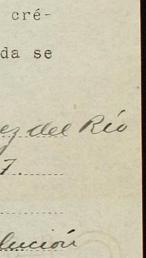 cré-
da se
ez del Río
7.
lución